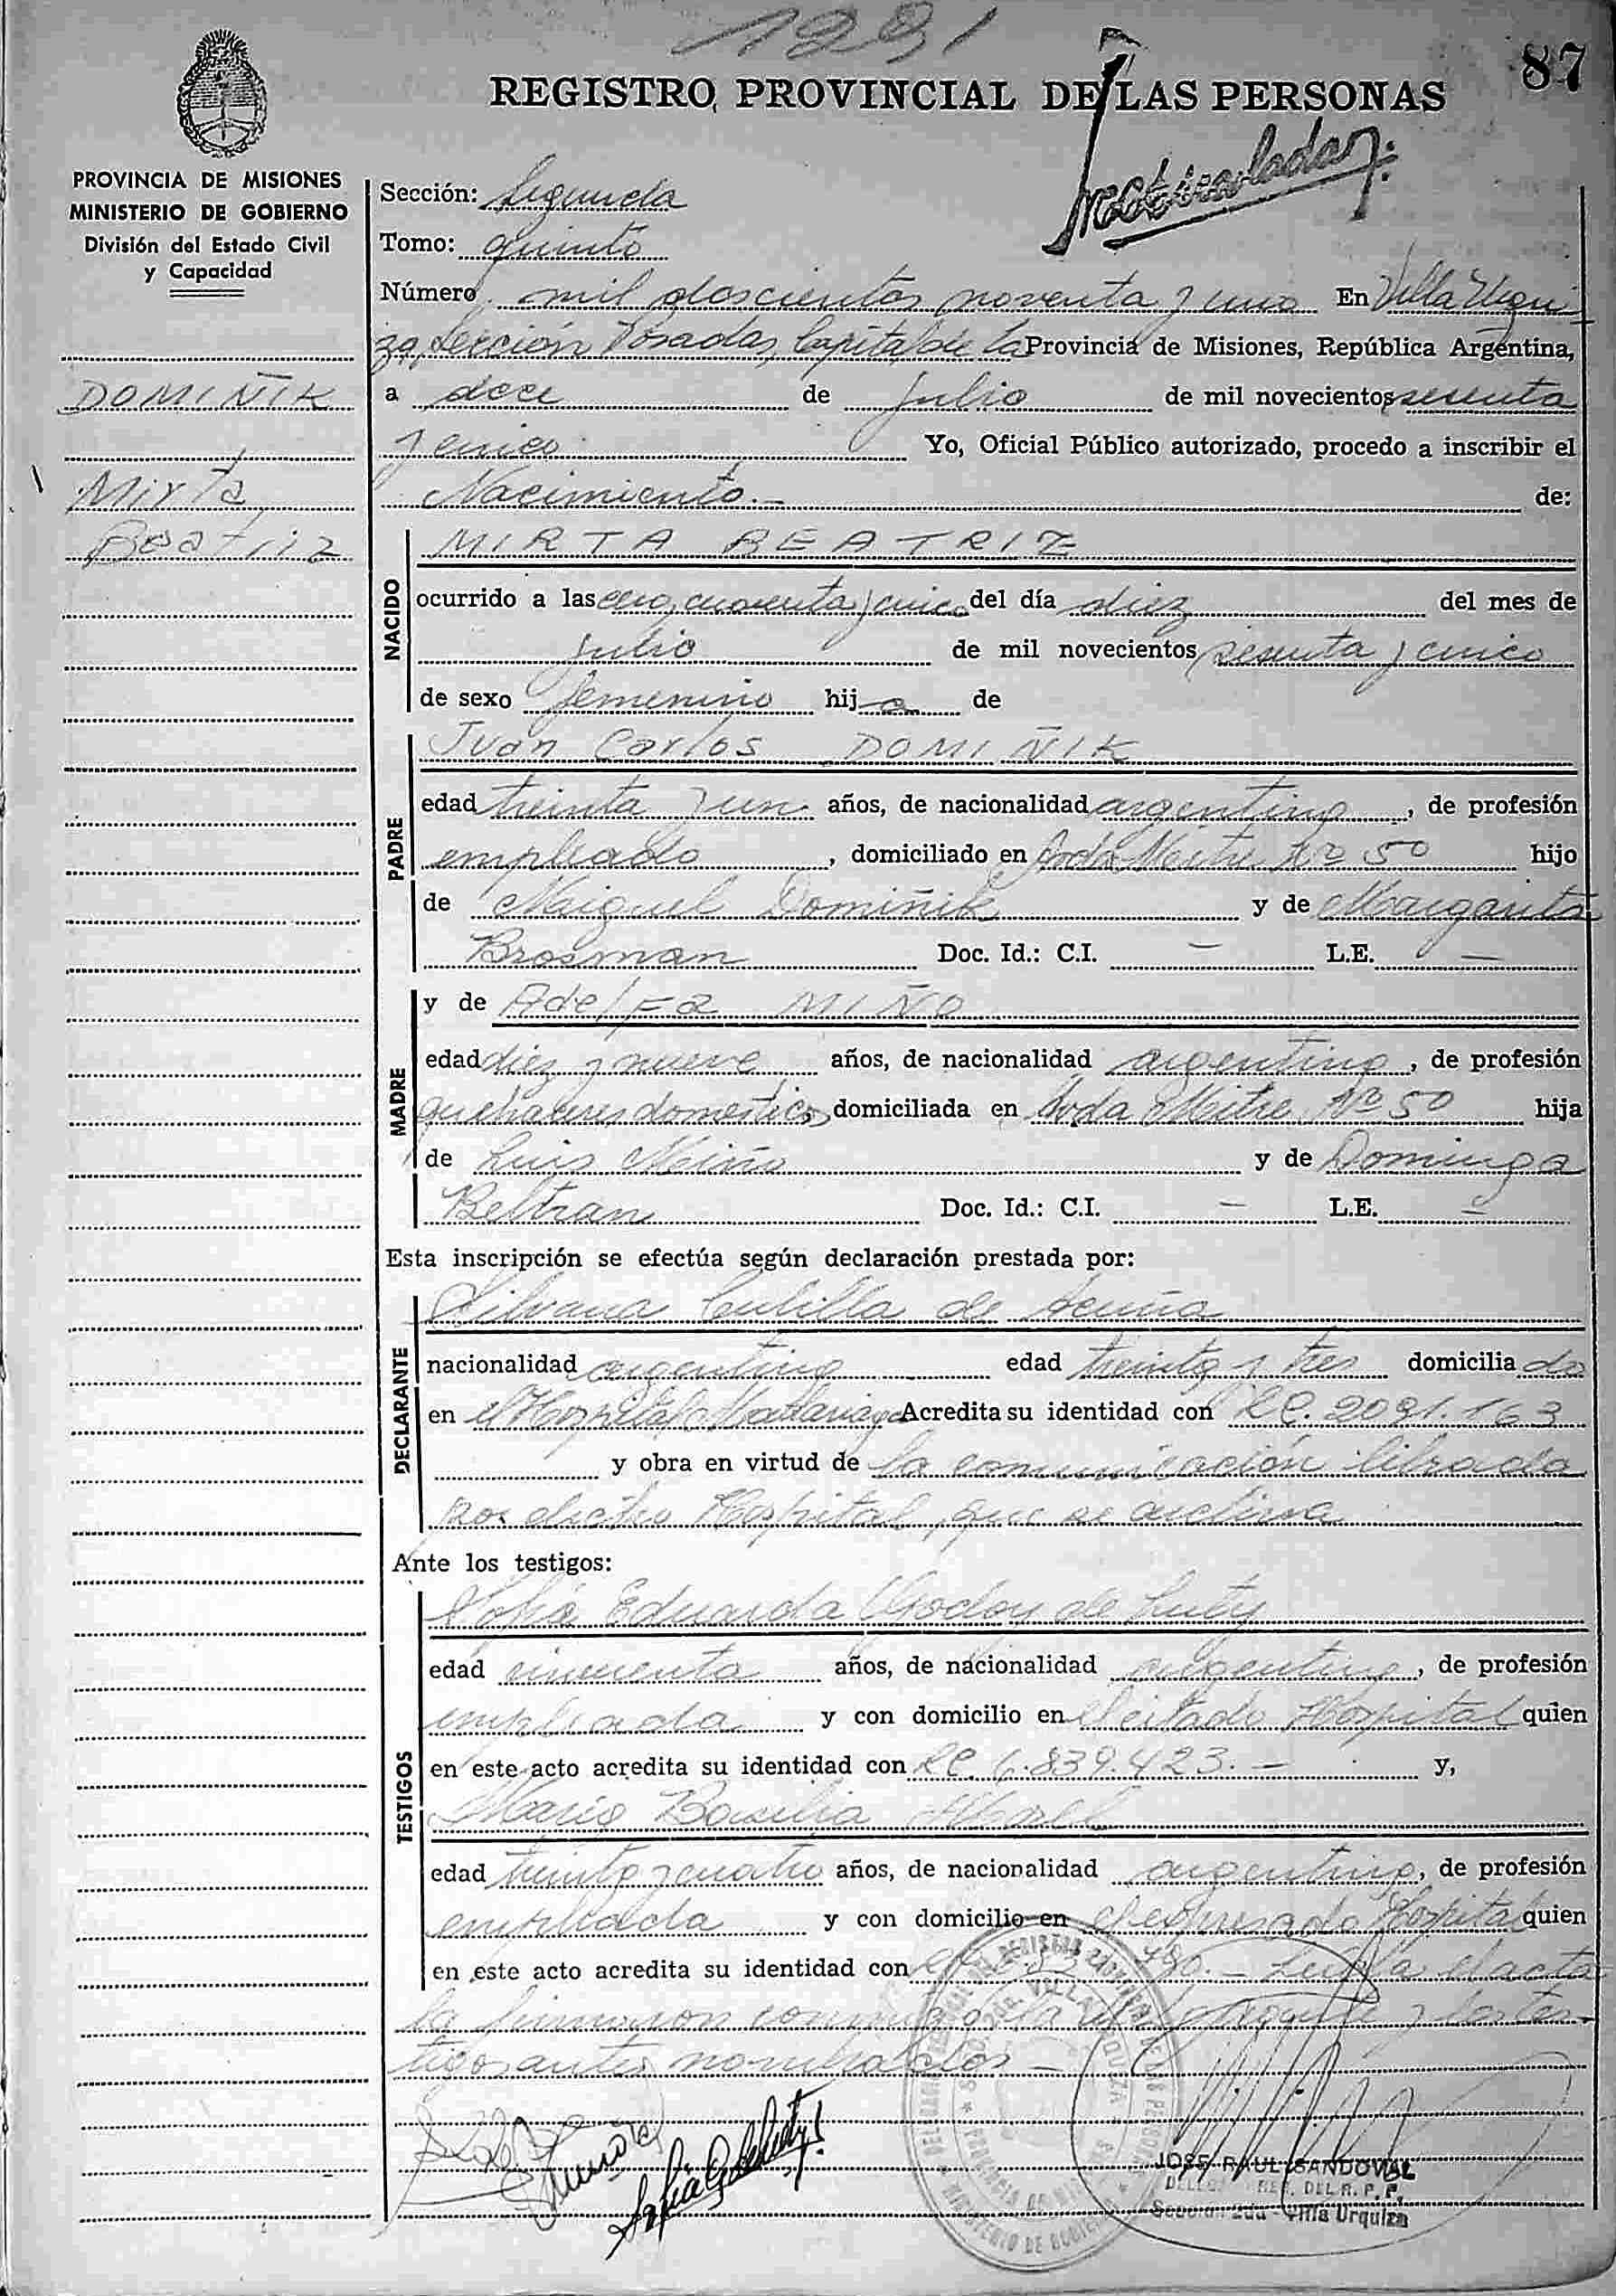 1291
87
REGISTRO PROVINCIAL DE LAS PERSONAS
PROVINCIA DE MISIONES
MINISTERIO DE GOBIERNO
División del Estado Civil
y Capacidad
DOMIÑIK
Mirta
Beatriz
Sección: Segunda
Tomo: quinto
Número mil doscientos noventa y uno En Villa Urqui
za, Sección Posadas, Capital de la Provincia de Misiones, República Argentina,
a doce de julio de mil novecientos sesenta
y cinco Yo, Oficial Público autorizado, procedo a inscribir el
Nacimiento.- de:
NACIDO
MIRTA BEATRIZ
ocurrido a las cero, cuarenta y cinco del día diez del mes de
julio de mil novecientos sesenta y cinco
de sexo femenino hija de
PADRE
Juan Carlos DOMIÑIK
edad treinta y un años, de nacionalidad argentino, de profesión
empleado, domiciliado en Avda Mitre Nº 50 hijo
de Miguel Domiñik y de Margarita
Brosman Doc. Id.: C.I. — L.E. —
MADRE
y de Adelfa MIÑO
edad diez y nueve años, de nacionalidad argentina, de profesión
quehaceres domesticos domiciliada en Avda Mitre Nº 50 hija
de Luis Miño y de Dominga
Beltran Doc. Id.: C.I. — L.E. —
Esta inscripción se efectúa según declaración prestada por:
DECLARANTE
Silvana de Acuña
nacionalidad argentina edad treinta y tres domiciliada
en el Hospital Madariaga Acredita su identidad con LC. 2091.163
y obra en virtud de la comunicación librada
por dicho Hospital, que se archiva
Ante los testigos:
TESTIGOS
Sofia Eduarda Godoy de
edad cincuenta años, de nacionalidad argentina, de profesión
empleada y con domicilio en el citado Hospital quien
en este acto acredita su identidad con LC. 6.839.423.- y,
Maria Basilia
edad treinta y cuatro años, de nacionalidad argentina, de profesión
empleada y con domicilio en el expresado Hospital quien
en este acto acredita su identidad con Leída el acta
la firmaron conmigo la y los tes-
tigos antes nombrados.-
JOSE RAUL SANDOVAL
DEL R. P. P.
Sección 2da - Villa Urquiza